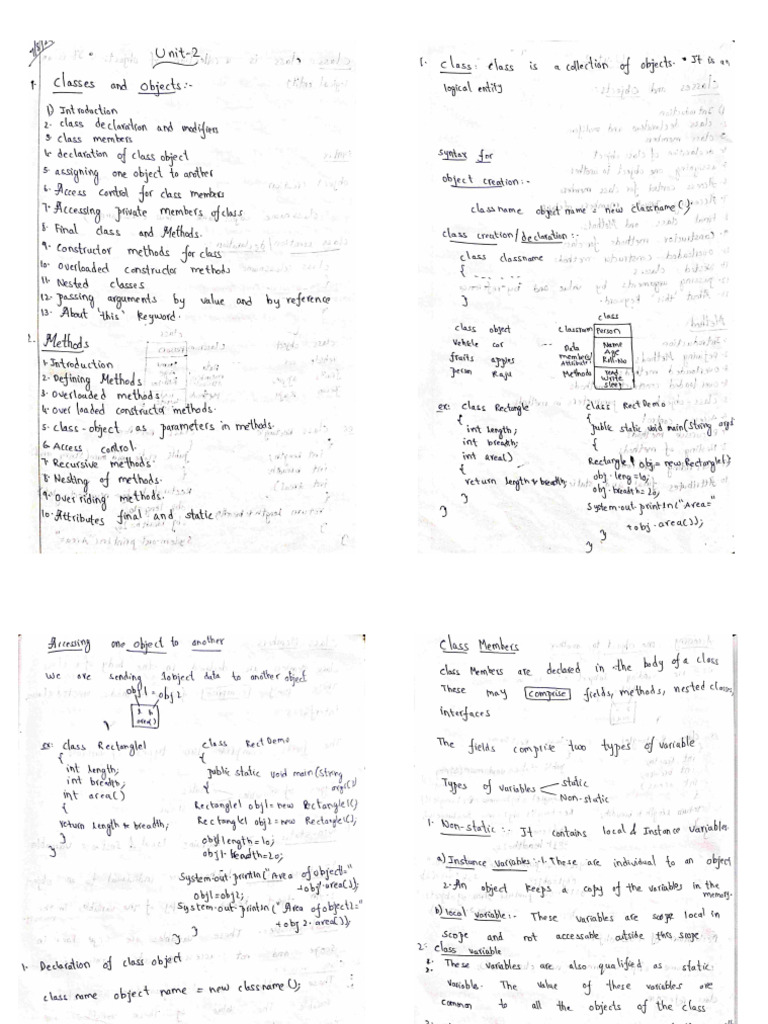 Unit-2
1. Classes and Objects:-
1) Introduction
2. class declaration and modifiers
3. class members
4. declaration of class object
5. assigning one object to another
6. Access control for class members
7. Accessing private members of class
8. Final class and Methods.
9. constructor methods for class
10. overloaded constructor methods
11. Nested classes
12. passing arguments by value and by reference
13. About 'this' keyword.
2. Methods
1. Introduction
2. Defining Methods
3. overloaded methods
4. over loaded constructor methods.
5. class-object as parameters in methods.
6. Access control.
7. Recursive methods.
8. Nesting of methods.
9. Over riding methods.
10. Attributes final and static
1. Class: class is a collection of objects. * It is an
logical entity
syntax for
object creation:-
classname object name = new classname();
class creation/declaration:-
class classname
{ - - - - - -
}
class object
vehicle car
fruits apples
person Raju
class
classname Person
Data members/ Attributes
Name
Age
Roll.No
Methods
read
write
sleep
ex: class Rectangle
{
int length;
int breadth;
int area()
{
return length * breadth;
}
}
class RectDemo
{
public static void main(String args
{
Rectangle obj = new Rectangle();
obj.leng = 10;
obj.breadth = 20;
System.out.println("Area="
+obj.area());
}
}
Accessing one object to another
We are sending 1object data to another object
obj1 = obj2
area()
ex: class Rectangle1
{
int length;
int breadth;
int area()
{
return Length * breadth;
}
}
class RectDemo
{
public static void main(String
args[])
{
Rectangle1 obj1=new Rectangle1()
Rectangle1 obj2=new Rectangle1();
obj1.length=10;
obj1.breadth=20;
System.out.println("Area of object1="
+obj1.area());
obj1=obj2;
System.out.println("Area of object2="
+obj2.area());
}
}
1. Declaration of class object
class name object name = new classname();
Class Members
class Members are declared in the body of a class
These may comprise fields, methods, nested classes,
interfaces
The fields comprise two types of variable
Types of variables
static
Non-static
1. Non-static:- It contains local & Instance variables
a) Instance variables:-1. These are individual to an object
2. An object keeps a copy of the variables in the
memory.
b) local variable:- These variables are scope local in
scope and not accessable outside this scope.
2. class variable
1. These variables are also qualified as static
2. variable. The value of these variables are
common to all the objects of the class